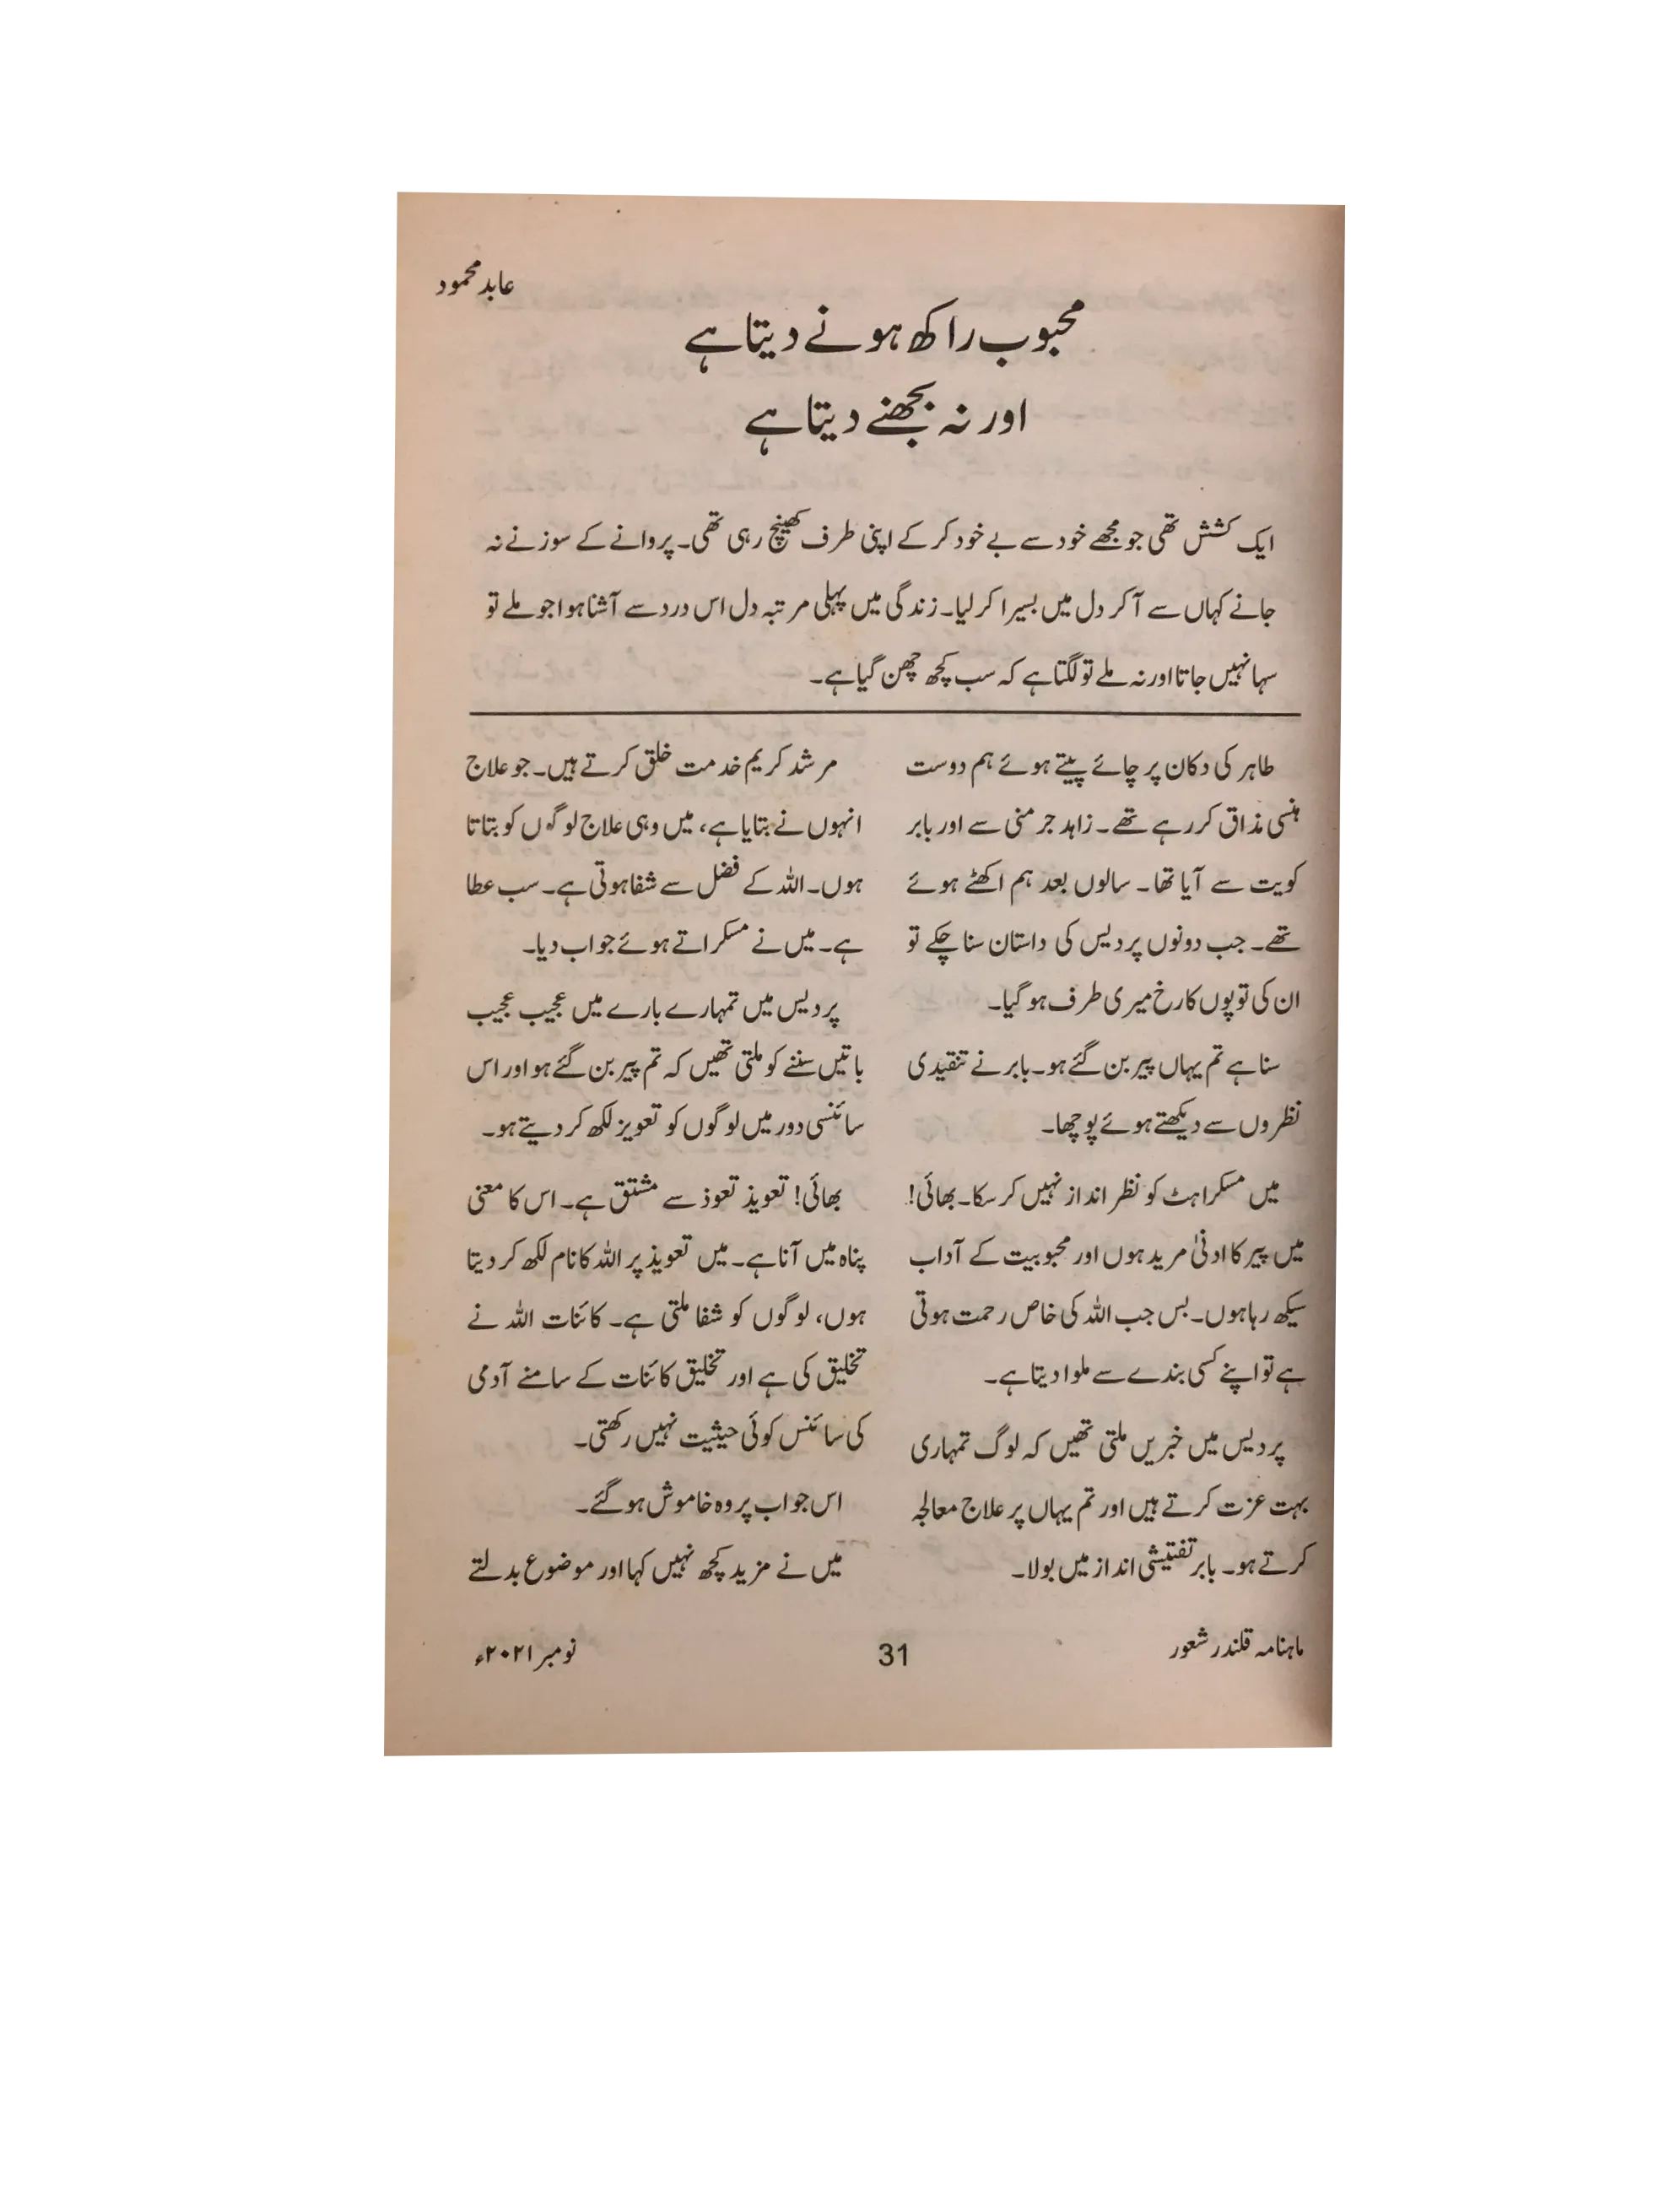 عابد محمود
محبوب راکھ ہونے دیتا ہے
اور نہ بجھنے دیتا ہے
ایک کشش تھی جو مجھے خود سے بے خود کر کے اپنی طرف کھینچ رہی تھی۔ پروانے کے سوز نے نہ
جانے کہاں سے آ کر دل میں بسیرا کر لیا۔ زندگی میں پہلی مرتبہ دل اس درد سے آشنا ہوا جو ملے تو
سہا نہیں جاتا اور نہ ملے تو لگتا ہے کہ سب کچھ چھن گیا ہے۔
طاہر کی دکان پر چائے پیتے ہوئے ہم دوست
ہنسی مذاق کر رہے تھے۔ زاہد جرمنی سے اور بابر
کویت سے آیا تھا۔ سالوں بعد ہم اکٹھے ہوئے
تھے۔ جب دونوں پردیس کی داستان سنا چکے تو
ان کی توپوں کا رخ میری طرف ہو گیا۔
سنا ہے تم یہاں پیر بن گئے ہو۔ بابر نے تنقیدی
نظروں سے دیکھتے ہوئے پوچھا۔
میں مسکراہٹ کو نظر انداز نہیں کر سکا۔ بھائی!
میں پیر کا ادنیٰ مرید ہوں اور محبوبیت کے آداب
سیکھ رہا ہوں۔ بس جب اللہ کی خاص رحمت ہوتی
ہے تو اپنے کسی بندے سے ملوا دیتا ہے۔
پردیس میں خبریں ملتی تھیں کہ لوگ تمہاری
بہت عزت کرتے ہیں اور تم یہاں پر علاج معالجہ
کرتے ہو۔ بابر تفتیشی انداز میں بولا۔
مرشد کریم خدمت خلق کرتے ہیں۔ جو علاج
انہوں نے بتایا ہے، میں وہی علاج لوگوں کو بتاتا
ہوں۔ اللہ کے فضل سے شفا ہوتی ہے۔ سب عطا
ہے۔ میں نے مسکراتے ہوئے جواب دیا۔
پردیس میں تمہارے بارے میں عجیب عجیب
باتیں سننے کو ملتی تھیں کہ تم پیر بن گئے ہو اور اس
سائنسی دور میں لوگوں کو تعویز لکھ کر دیتے ہو۔
بھائی! تعویذ تعوذ سے مشتق ہے۔ اس کا معنی
پناہ میں آنا ہے۔ میں تعویذ پر اللہ کا نام لکھ کر دیتا
ہوں، لوگوں کو شفا ملتی ہے۔ کائنات اللہ نے
تخلیق کی ہے اور تخلیق کائنات کے سامنے آدمی
کی سائنس کوئی حیثیت نہیں رکھتی۔
اس جواب پر وہ خاموش ہو گئے۔
میں نے مزید کچھ نہیں کہا اور موضوع بدلتے
ماہنامہ قلندر شعور
31
نومبر ۲۰۲۱ء